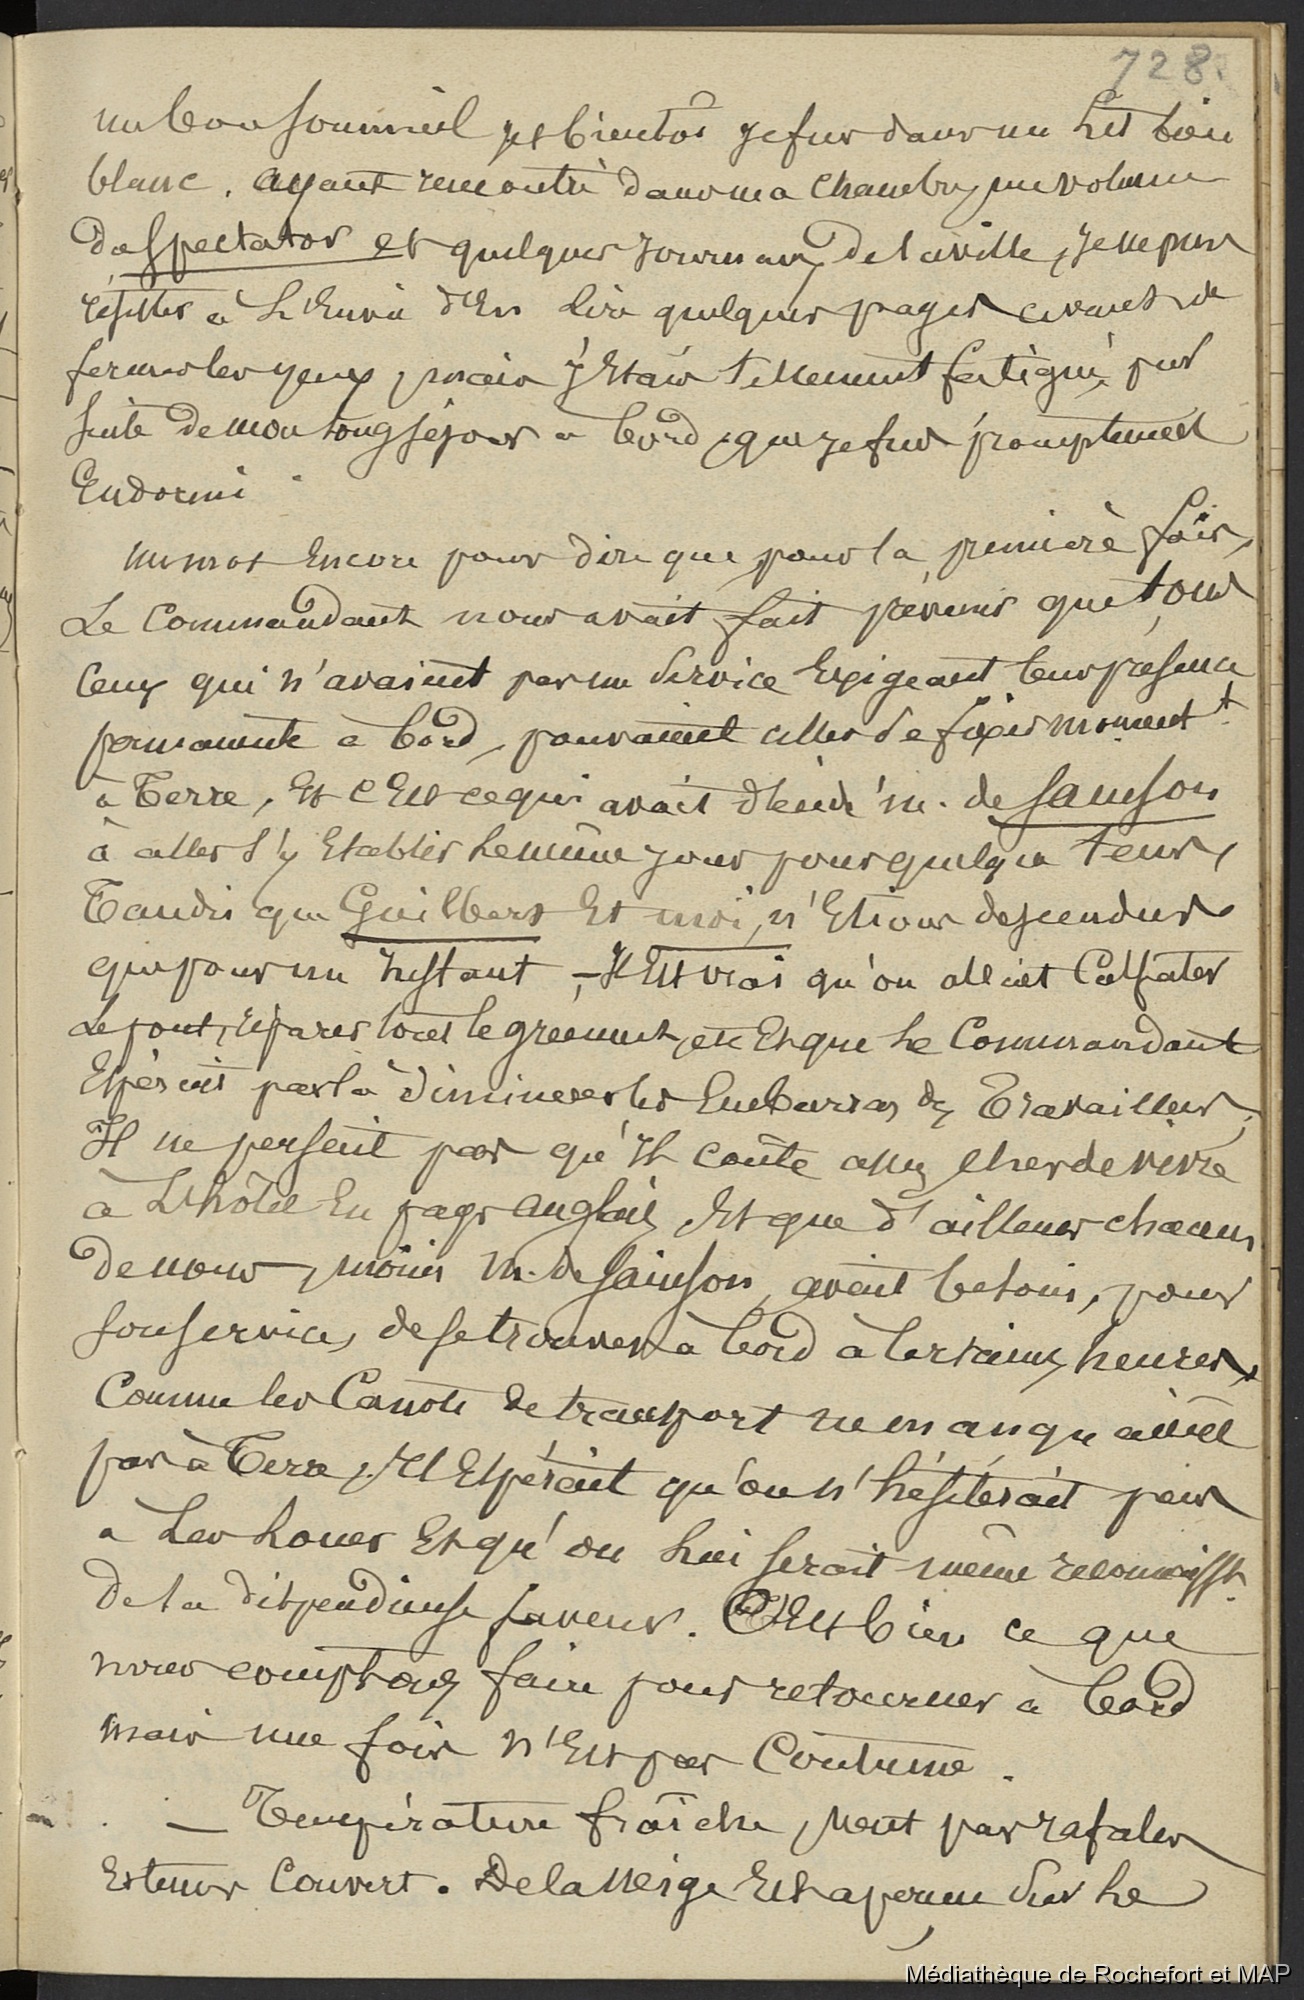 728.
un bon sommeil, et bientôt je fus dans un Lit bien
blanc. ayant rencontré dans ma chambre, un volume
du Spectator et quelques Journaux de la ville, je ne pus
résister à L'Envie d'En lire quelques pages avant de
fermer les yeux, mais j'Etais tellement fatigué, par
suite de mon long séjour à bord, que je fus promptement
Endormi.
un mot Encore pour dire que, pour la première fois,
Le Commandant nous avait fait prévenir que tous
ceux qui n'avaient pas un service Exigeant leur présence
permanente à bord, pouvaient aller se fixer moment.t
à Terre, Et c'Est ce qui avait décidé m. de Sainson
à aller s'y Etablir le même jour pour quelque tems,
Tandis que Guilbert Et moi, n'Etions descendus
que pour un Instant, - Il Est vrai qu'on allait Calfater
Le pont, réparer tout le greement, etc Et que Le Commandant
Espérait par là diminuer les Embarras des Travailleurs;
Il ne pensait pas qu'Il coûte assez cher de vivre
à L'hôtel En pays anglais, Et que d'ailleurs chacun
de nous, moins M. de Sainson, avait besoin, pour
son service, de se trouver à bord à Certaines heures,
Comme les Canots de transport ne manquaient
pas à Terre, Il Espérait qu'on n'hésiterait pas
à Les Louer Et qu'on Lui serait même reconnaiss.t
de la dispendieuse faveur. C'Est bien ce que
nous comptons faire pour retourner à bord
mais une fois n'Est pas Coutume.
— Température fraîche, vent par rafales
Et tems Couvert. De la Neige Est aperçue sur Le
Médiathèque de Rochefort et MAP